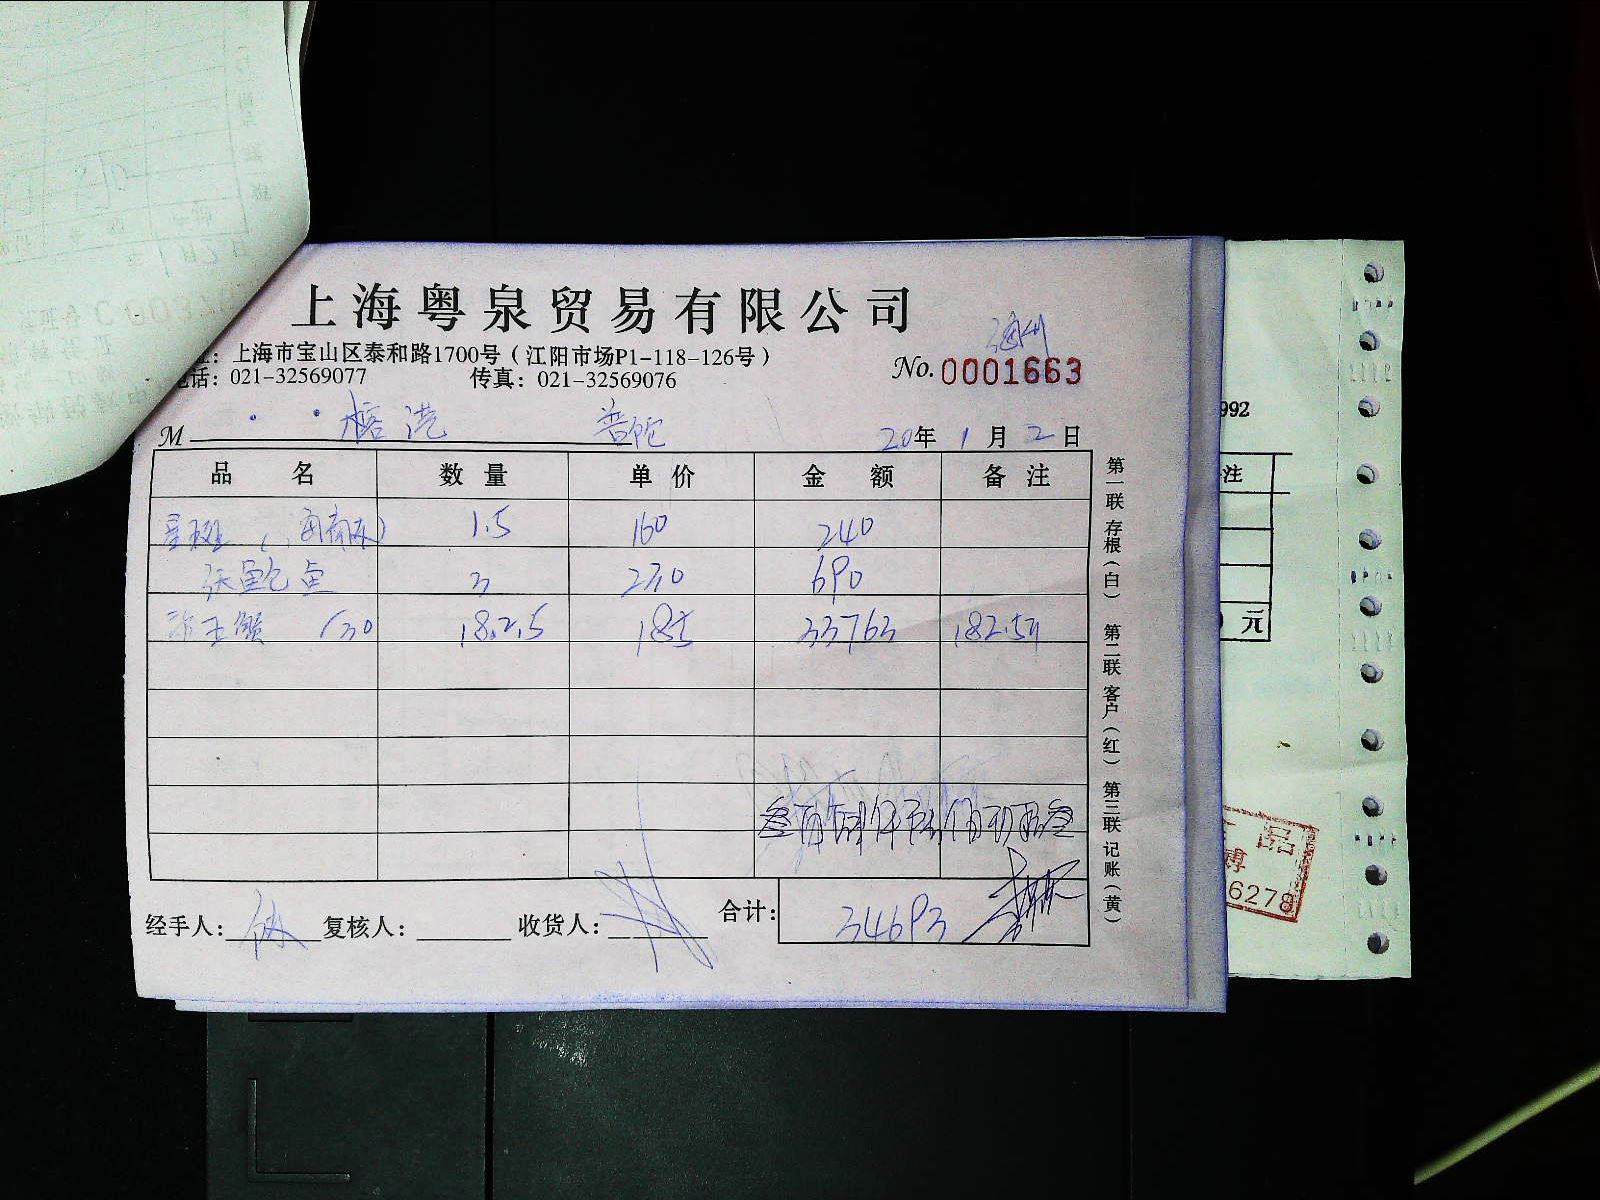 上海粤泉贸易有限公司
址：上海市宝山区泰和路1700号（江阳市场P1-118-126号）
电话：021-32569077 传真：021-32569076
No.0001663
M 榕港 普陀 20年1月2日
品名 数量 单价 金额 备注
星斑 1.5 160 240
鲍鱼 3 230 690
182.5 185 33763 182.5
合计：34693
经手人： 复核人： 收货人：
第一联 存根（白） 第二联 客户（红） 第三联 记账（黄）
992
注
元
品
博
6278